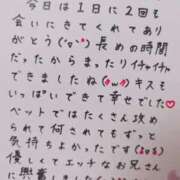 今日は1日に2回も
会いにきてくれてあり
がとう(˘ω˘)♡長めの時間
だったからまったりイチャイチャ
できましたね(〃ω〃)キスも
いっぱいできて幸せでした♡
ベットではたくさん攻め
られて何されてもずっと
気持ちよかったです(≧ε≦)
優しくてエッチなお兄さん
に興奮しました